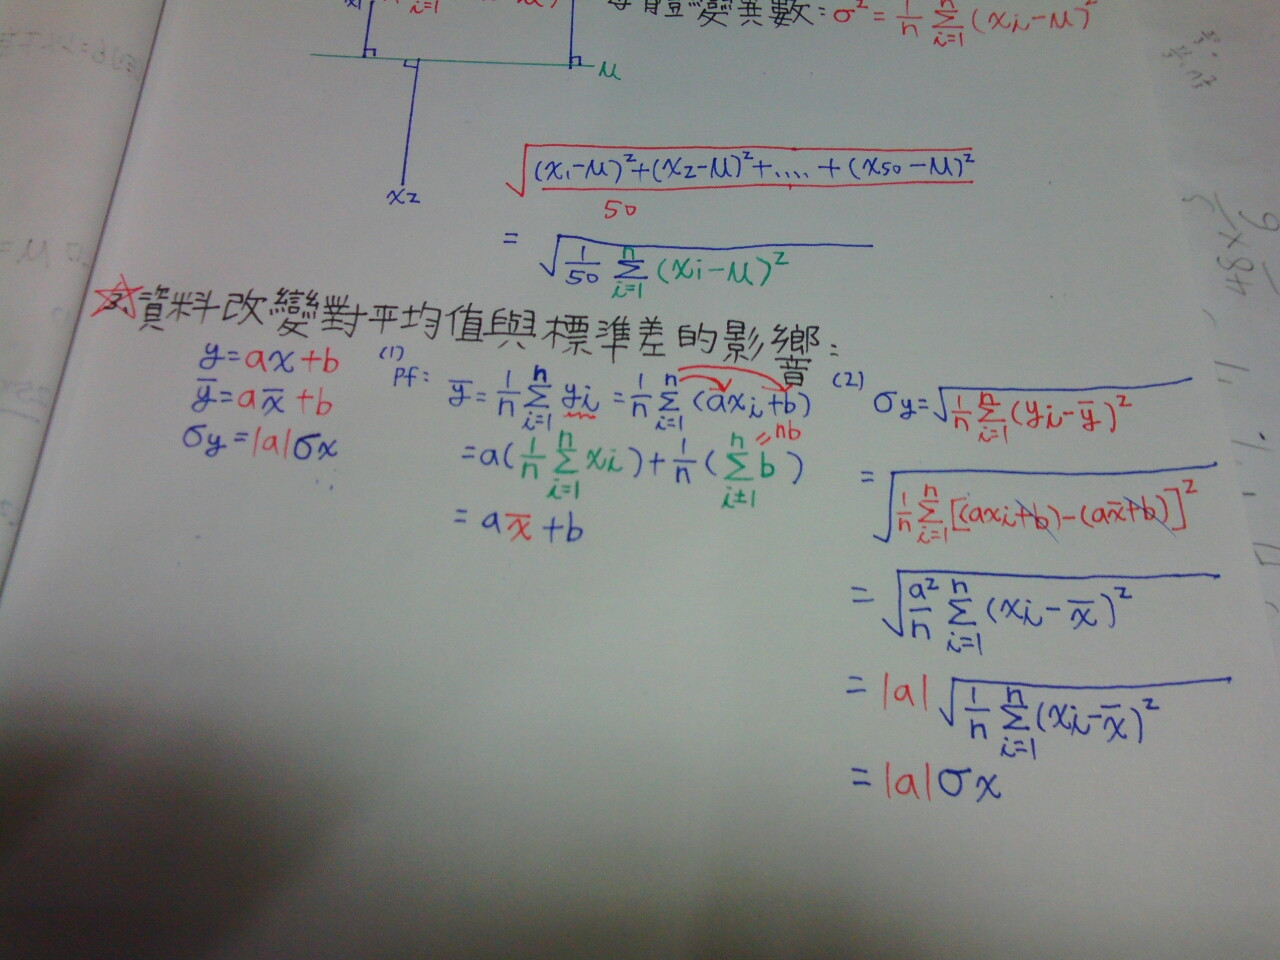 母體變異數：σ² = 1/n Σ(i=1→n) (xi-μ)²
μ
x2
√[((x1-μ)²+(x2-μ)²+....+(x50-μ)²)/50]
= √[1/50 Σ(i=1→n) (xi-μ)²]
3. 資料改變對平均值與標準差的影響：
y=ax+b
y̅=ax̅+b
σy=|a|σx
(1)
pf: y̅ = 1/n Σ(i=1→n) yi = 1/n Σ(i=1→n) (axi+b)
=a(1/n Σ(i=1→n) xi)+1/n(Σ(i=1→n) b) = nb
= ax̅+b
(2) σy=√[1/n Σ(i=1→n) (yi-y̅)²]
= √[1/n Σ(i=1→n) [(axi+b)-(ax̅+b)]²]
= √[a²/n Σ(i=1→n) (xi-x̅)²]
= |a| √[1/n Σ(i=1→n) (xi-x̅)²]
= |a|σx